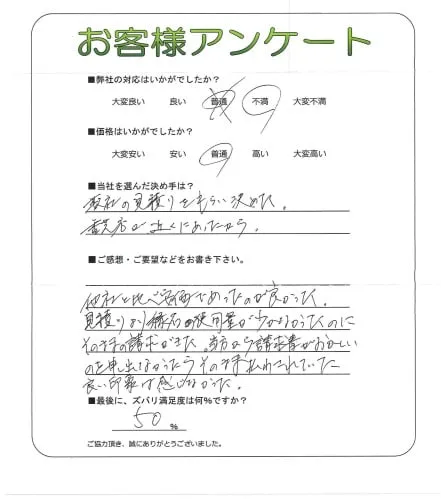 お客様アンケート
■弊社の対応はいかがでしたか？
大変良い 良い 普通 不満 大変不満
■価格はいかがでしたか？
大変安い 安い 普通 高い 大変高い
■当社を選んだ決め手は？
数社の見積りをもらい決めた。
支店が近くにあったから。
■ご感想・ご要望などをお書き下さい。
他社と比べ安価であったのが良かった。
見積りより縁石の使用量が少なかったのに
そのままの請求がきた。当方から請求書がおかしい
のを申し出なかったらそのまま払わされていた
良い印象は感じなかった。
■最後に、ズバリ満足度は何%ですか？
50 %
ご協力頂き、誠にありがとうございました。